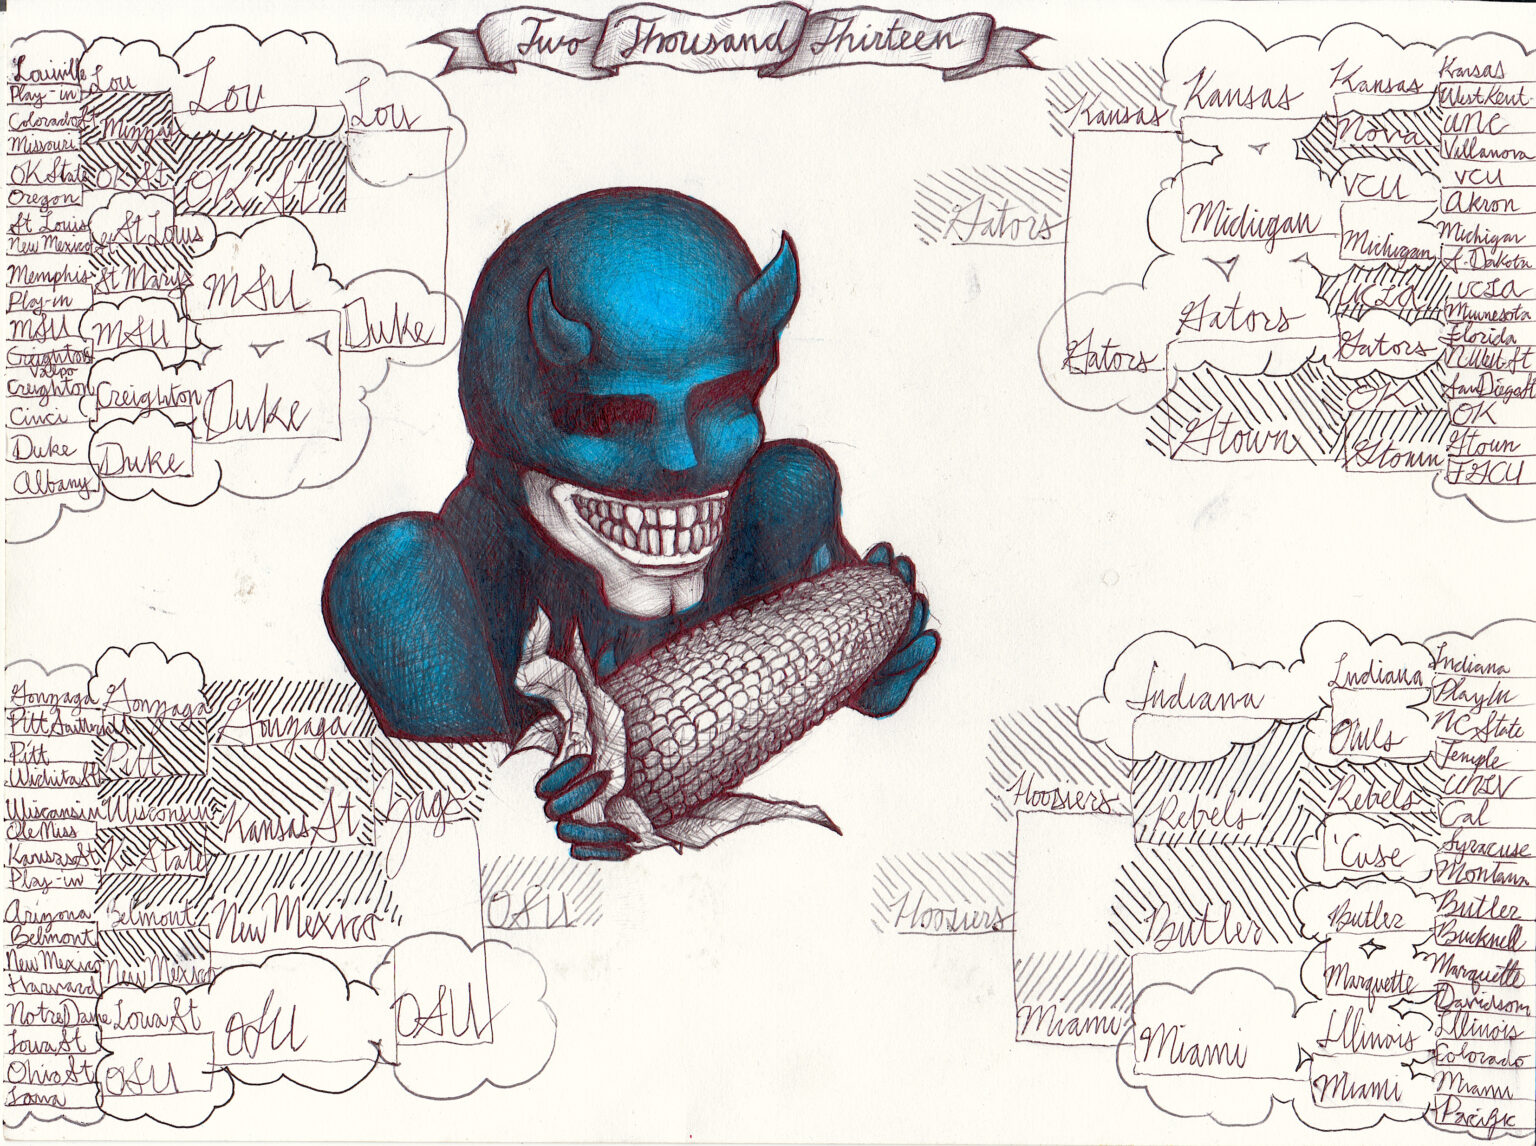 Two Thousand Thirteen
Louiville
Play-in
Colorado St
Missouri
OK State
Oregon
St Louis
New Mexico St
Memphis
Play-in
MSU
Creighton
Valpo
Creighton
Cinci
Duke
Albany
Lou
Mizzou
OK St
St Louis
St Marys
MSU
Creighton
Duke
Lou
OK St
MSU
Duke
Lou
Duke
Kansas
West Kent.
UNC
Villanova
VCU
Akron
Michigan
S. Dakota
UCLA
Minnesota
Florida
NWest St
San Diego St
OK
Gtown
FGCU
Kansas
Nova
VCU
Michigan
UCLA
Gators
OK
Gtown
Kansas
Michigan
Gators
Gtown
Kansas
Gators
Gators
Gonzaga
Pitt
Wichita St
Wisconsin
Ole Miss
Kansas St
Play-in
Arizona
Belmont
New Mexico
Harvard
Notre Dame
Iowa St
Ohio St
Iona
Gonzaga
Pitt
Wisconsin
K State
Belmont
New Mexico
Iowa St
OSU
Gonzaga
Kansas St
New Mexico
OSU
Zags
OSU
OSU
Indiana
Play In
NC State
Temple
UNLV
Cal
Syracuse
Montana
Butler
Bucknell
Marquette
Davidson
Illinois
Colorado
Miami
Pacific
Indiana
Owls
Rebels
'Cuse
Butler
Marquette
Illinois
Miami
Indiana
Rebels
Butler
Miami
Hoosiers
Miami
Hoosiers